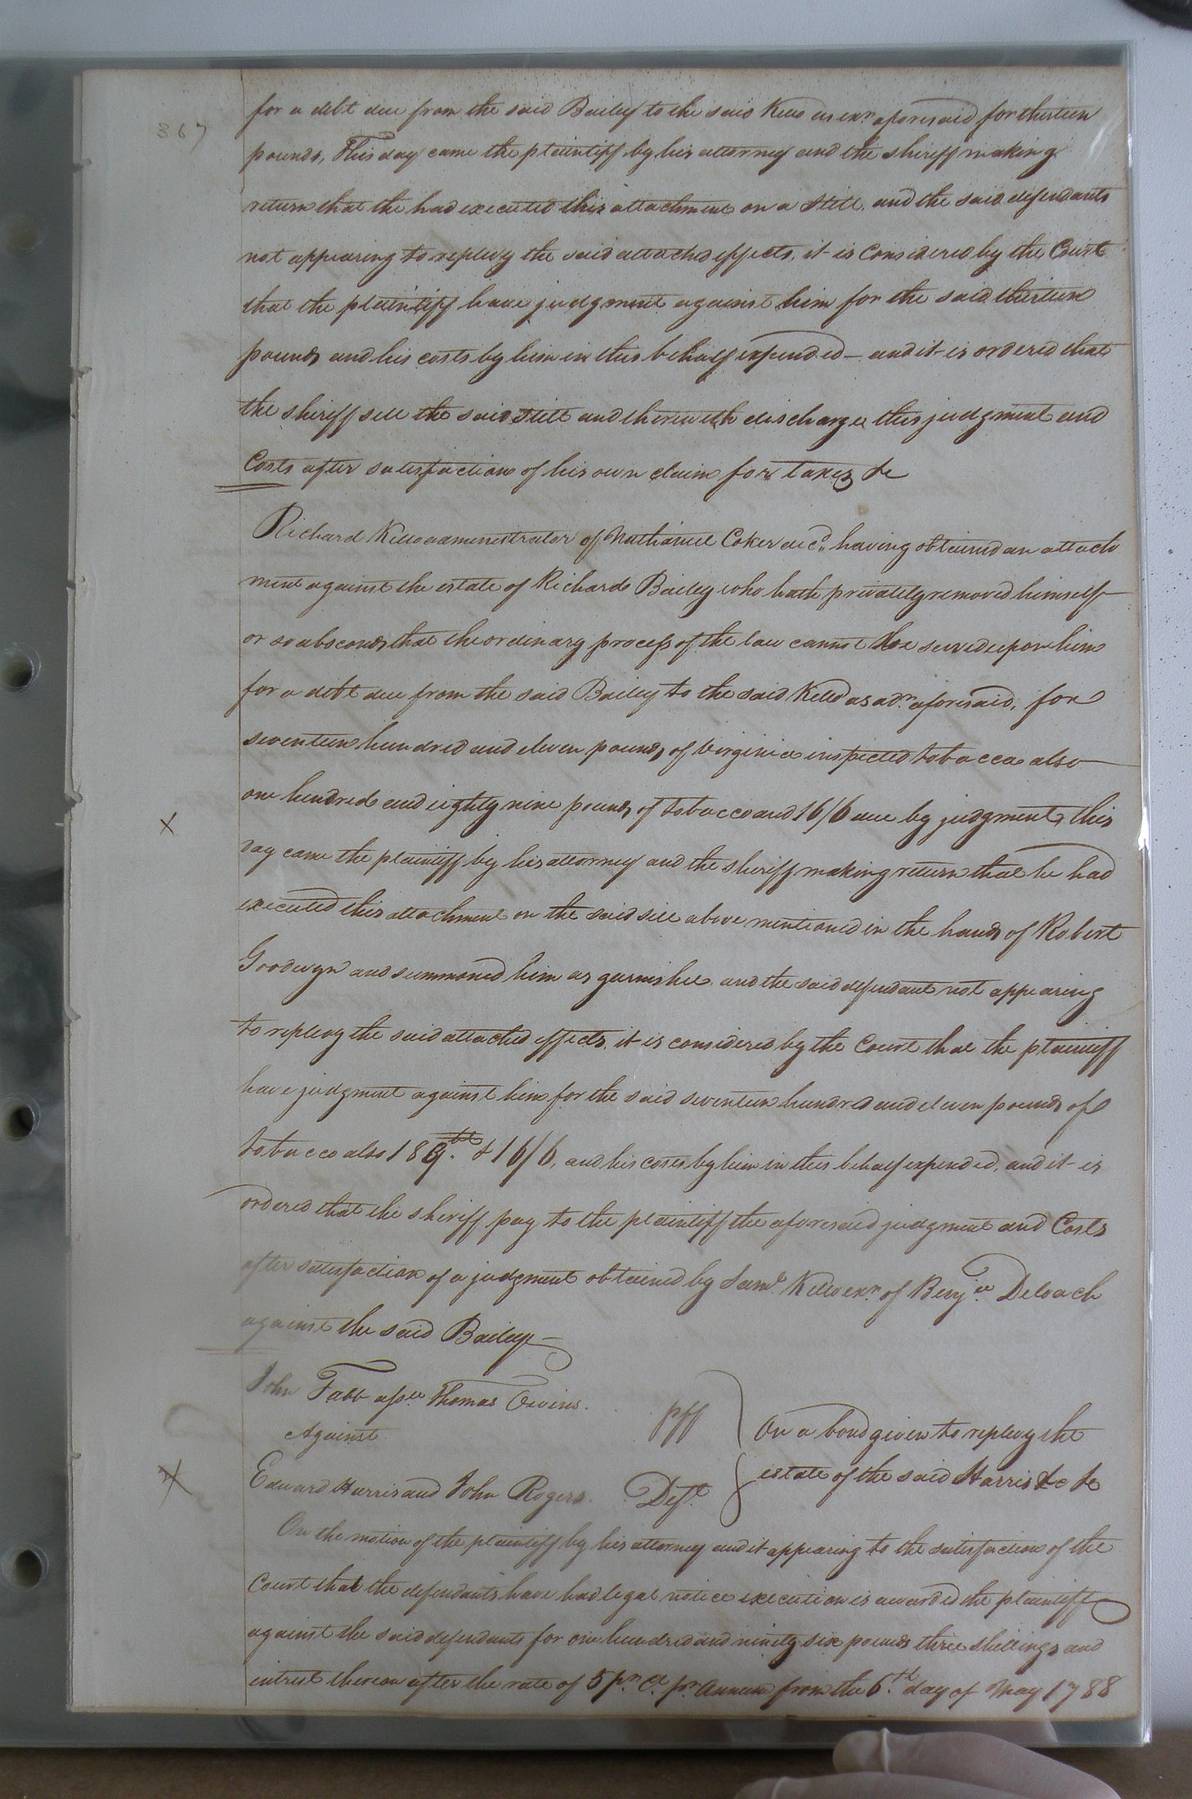 367
for a debt due from the said Bailey to the said Kello as exr. aforesaid for thirteen
pounds, This day came the plaintiff by his attorney and the sheriff making
return that the had executed this attachment on a Still, and the said defendants
not appearing to replevy the said attached effects, it is Considered by the Court
that the plaintiff have judgment against him for the said thirteen
pounds and his costs by him in this behalf expended – and it is ordered that
the sheriff sell the said Still and therewith discharge this judgment and
Costs after satisfaction of his own claim for taxes &c
Richard Kello administrator of Nathaniel Coker decd. having obtained an attach
ment against the estate of Richard Bailey who hath privately removed himself
or so absconds that the ordinary process of the law cannot be served upon him
for a debt due from the said Bailey to the said Kello as adr. aforesaid, for
seventeen hundred and eleven pounds of Virginia inspected tobacco also
one hundred and eighty nine pounds of tobacco and 16/6 due by judgment, this
day came the plaintiff by his attorney and the sheriff making return that he had
executed this attachment on the said sill above mentioned in the hands of Robert
Goodwyn and summoned him as garnishee and the said defendant not appearing
to replevy the said attached effects, it is considered by the Court that the plaintiff
have judgment against him for the said seventeen hundred and eleven pounds of
tobacco also 189lb. & 16/6, and his costs by him in this behalf expended, and it is
ordered that the sheriff pay to the plaintiff the aforesaid judgment and Costs
after satisfaction of a judgment obtained by Saml. Kello exr. of Benja. Deloach
against the said Bailey –
John Tabb assee. Thomas Eivins. plf
Against
On a bond given to replevy the
estate of the said Harris &c &c
Edward Harris and John Rogers. Defts.
On the motion of the plaintiff by his attorney and it appearing to the satisfaction of the
Court that the defendants have had legal notice execution is awarded the plaintiff
against the said defendants for one hundred and ninety six pounds three shillings and
intrest thereon after the rate of 5 pr. Ct. pr. Annum from the 6th. day of May 1788